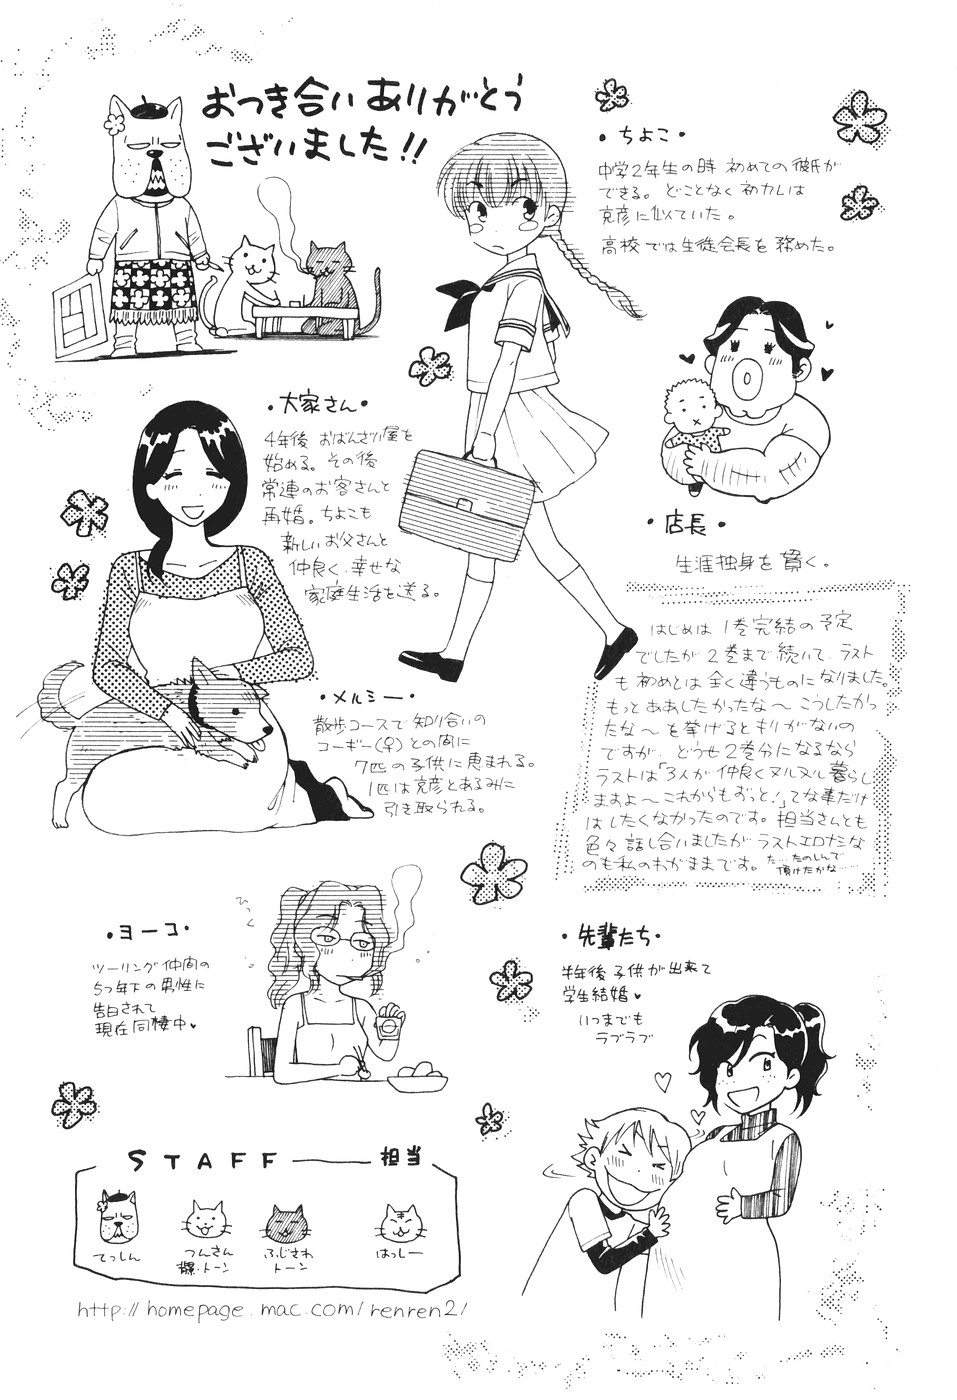 おつき合いありがとう
ございました!!
・ちよこ・
中学2年生の時 初めての彼氏が
できる。どことなく初カレは
克彦に似ていた。
高校では生徒会長を務めた。
・大家さん・
4年後 おばんざい屋を
始める。その後
常連のお客さんと
再婚。ちよこも
新しいお父さんと
仲良く、幸せな
家庭生活を送る。
・店長・
生涯独身を貫く。
はじめは 1巻完結の予定
でしたが 2巻まで続いて、ラスト
も初めとは全く違うものになりました。
もっとああしたかったな〜 こうしたかっ
たな〜 を挙げるとキリがないの
ですが、どうせ2巻分になるなら
ラストは「3人が仲良くヌルヌル暮らし
ますよ〜これからもずっと!」てな事だけ
はしたくなかったのです。担当さんとも
色々話し合いましたが ラストエロナシな
のも私のわがままです。
た…たのしんで
頂けたかな……
・メルシー・
散歩コースで知り合いの
コーギー(♀)との間に
7匹の子供に恵まれる。
1匹は克彦とあるみに
引き取られる。
・ヨーコ・
ツーリング仲間の
5つ年下の男性に
告白されて
現在同棲中♥
ひっく
・先輩たち・
半年後 子供が出来て
学生結婚♥
いつまでも
ラブラブ
STAFF ――― 担当
てっしん
つんさん
・トーン
ふじさわ
トーン
はっしー
http://homepage.mac.com/renren2/